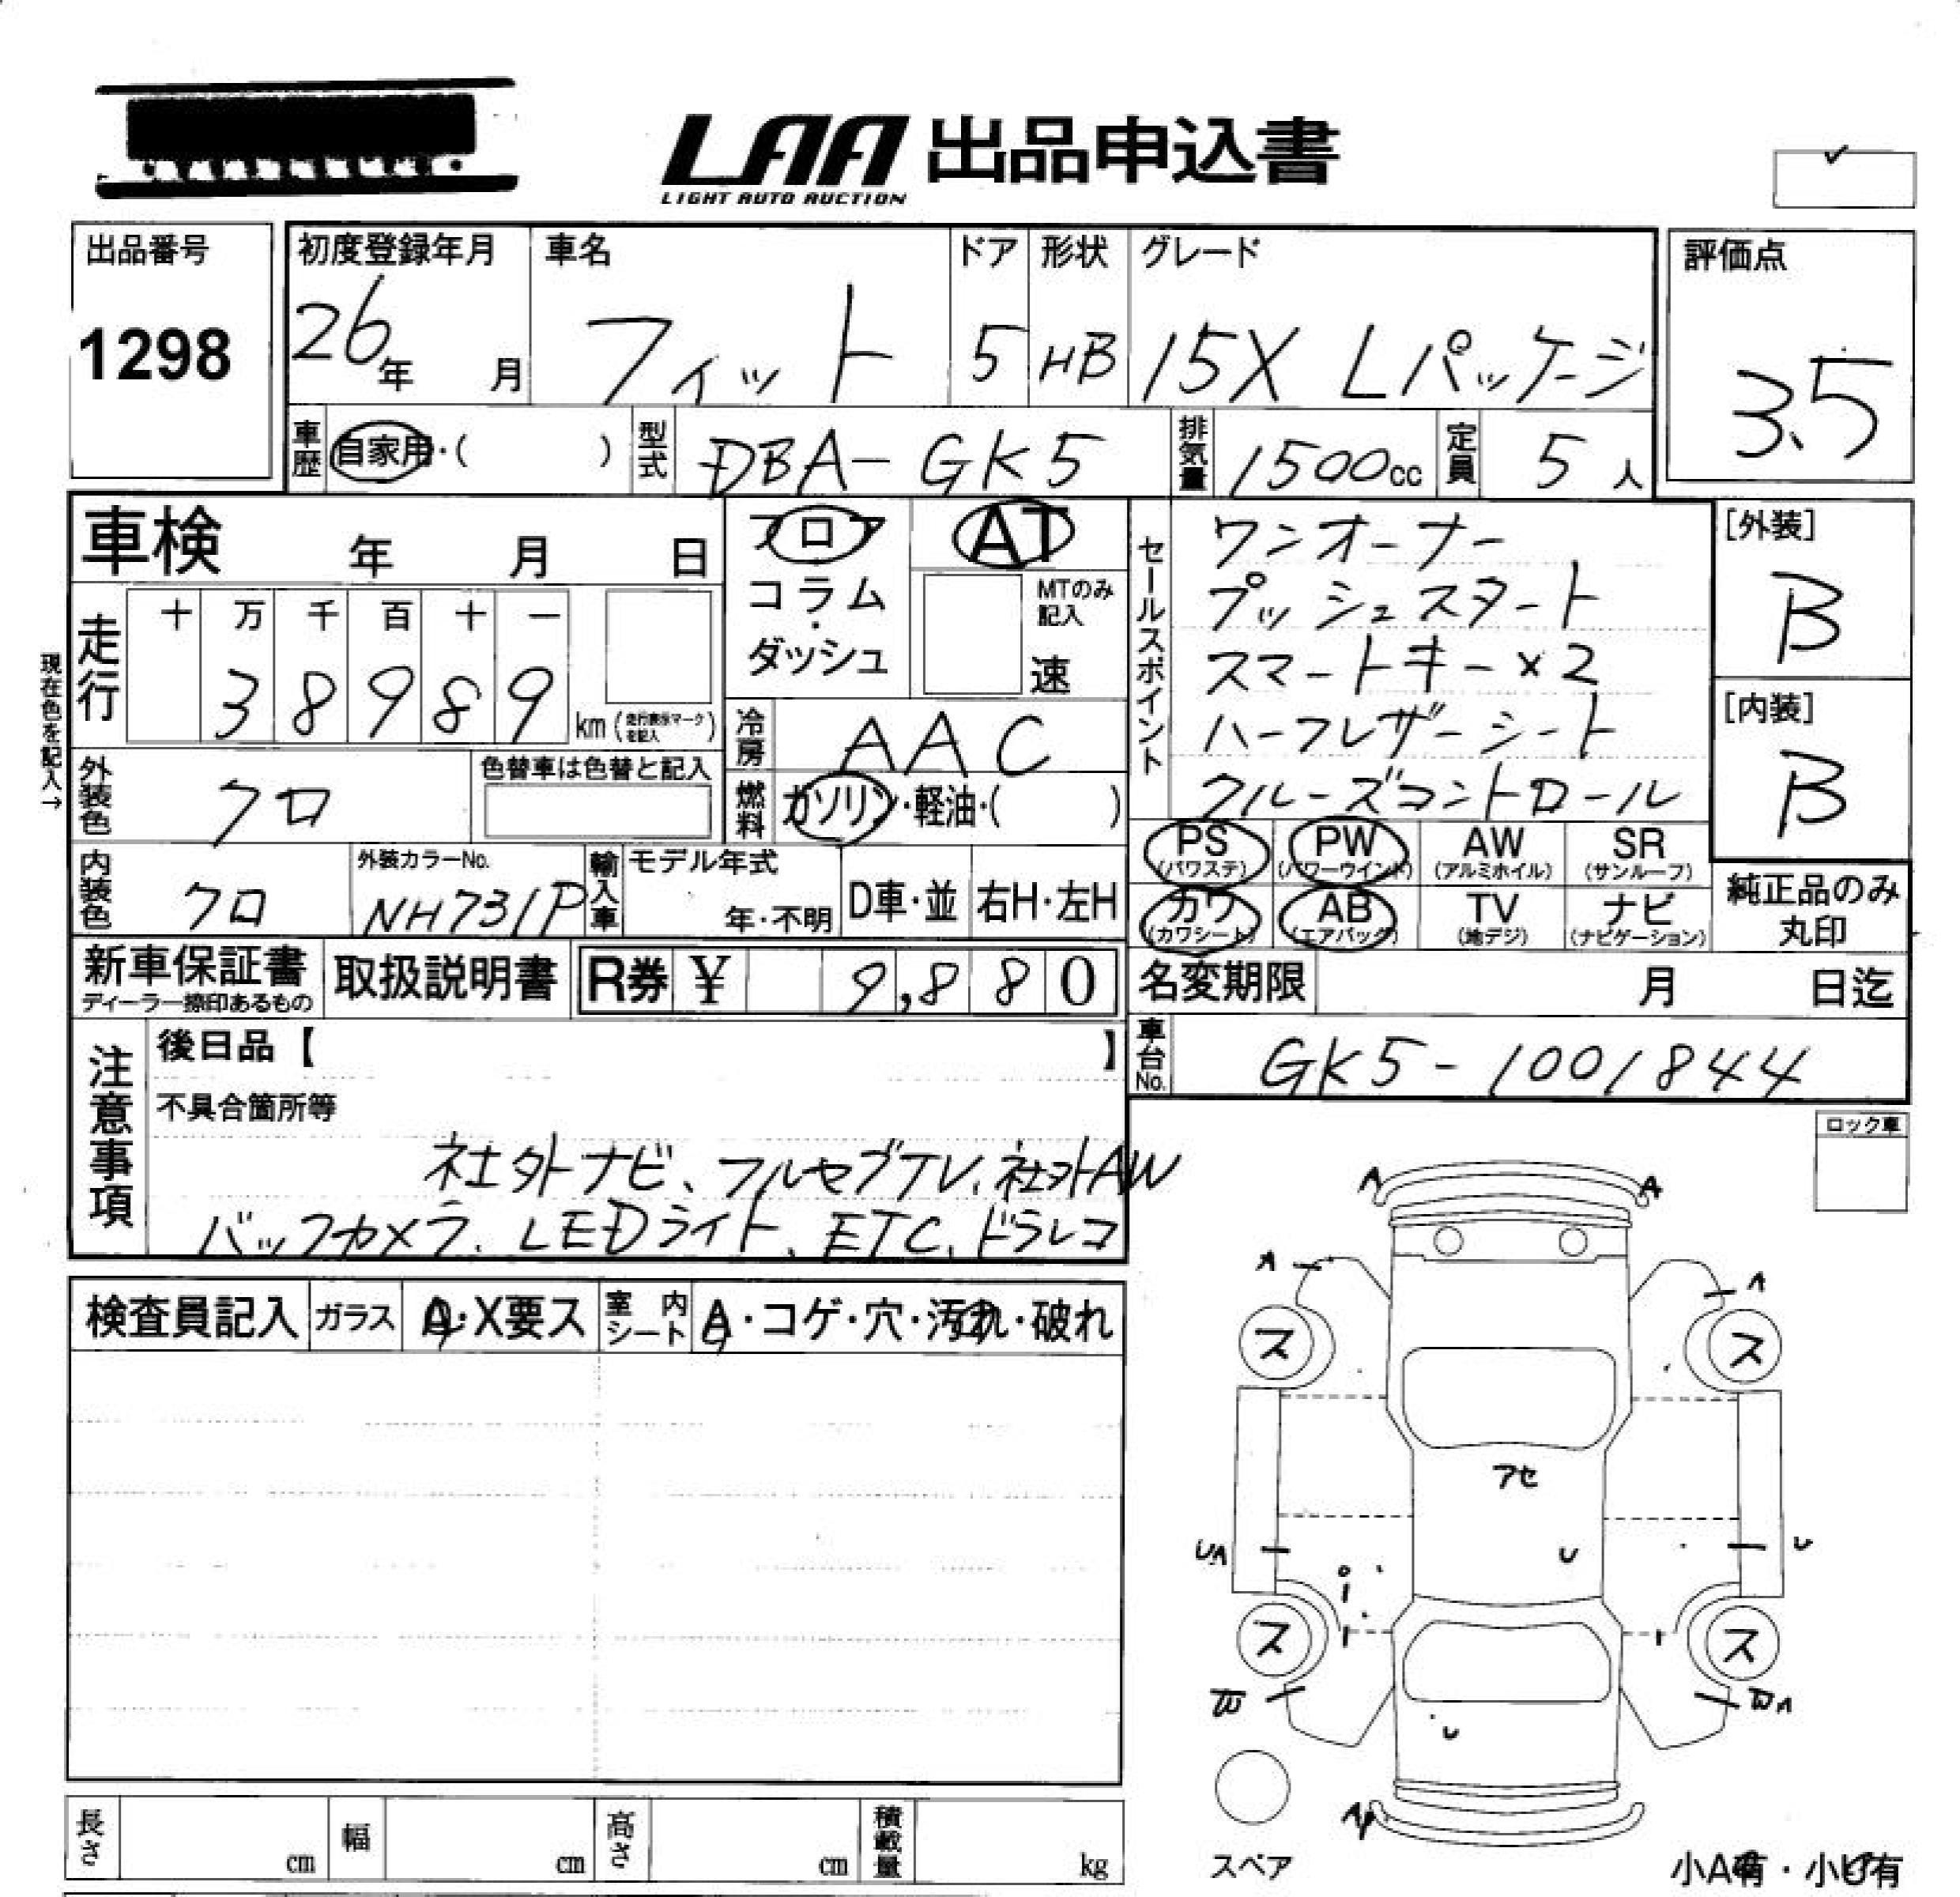 LAA 出品申込書
LIGHT AUTO AUCTION
出品番号
1298
初度登録年月 車名 ドア 形状 グレード
26年 月 フィット 5 HB 15X Lパッケージ
評価点
3.5
車歴 自家用・( ) 型式 DBA-GK5 排気量 1500cc 定員 5人
車検 年 月 日
フロア
コラム
・
ダッシュ
AT
MTのみ
記入
速
走行 十 万 千 百 十 一
38989 km (走行表示マークを記入)
現在色を記入→
外装色 クロ 色替車は色替と記入
冷房 AAC
燃料 ガソリン・軽油・( )
内装色 クロ 外装カラーNo. NH731P
輸入車 モデル年式 年・不明 D車・並 右H・左H
セールスポイント
ワンオーナー
プッシュスタート
スマートキー×2
ハーフレザーシート
クルーズコントロール
[外装]
B
[内装]
B
PS PW AW SR
(パワステ) (パワーウインド) (アルミホイル) (サンルーフ)
カワ AB TV ナビ
(カワシート) (エアバック) (地デジ) (ナビゲーション)
純正品のみ
丸印
新車保証書
ディーラー捺印あるもの
取扱説明書 R券 ¥ 9,880
名変期限 月 日迄
車台No. GK5-1001844
注意事項
後日品【 】
不具合箇所等
社外ナビ、フルセグTV、社外AW
バックカメラ、LEDライト、ETC、ドラレコ
ロック車
検査員記入 ガラス A・X要ス 室内シート A・コゲ・穴・汚れ・破れ
A A
A A
ス ス
アセ
UA U U
ス ス
W WA
U
A
スペア
長さ cm 幅 cm 高さ cm 積載量 kg
小A有・小U有